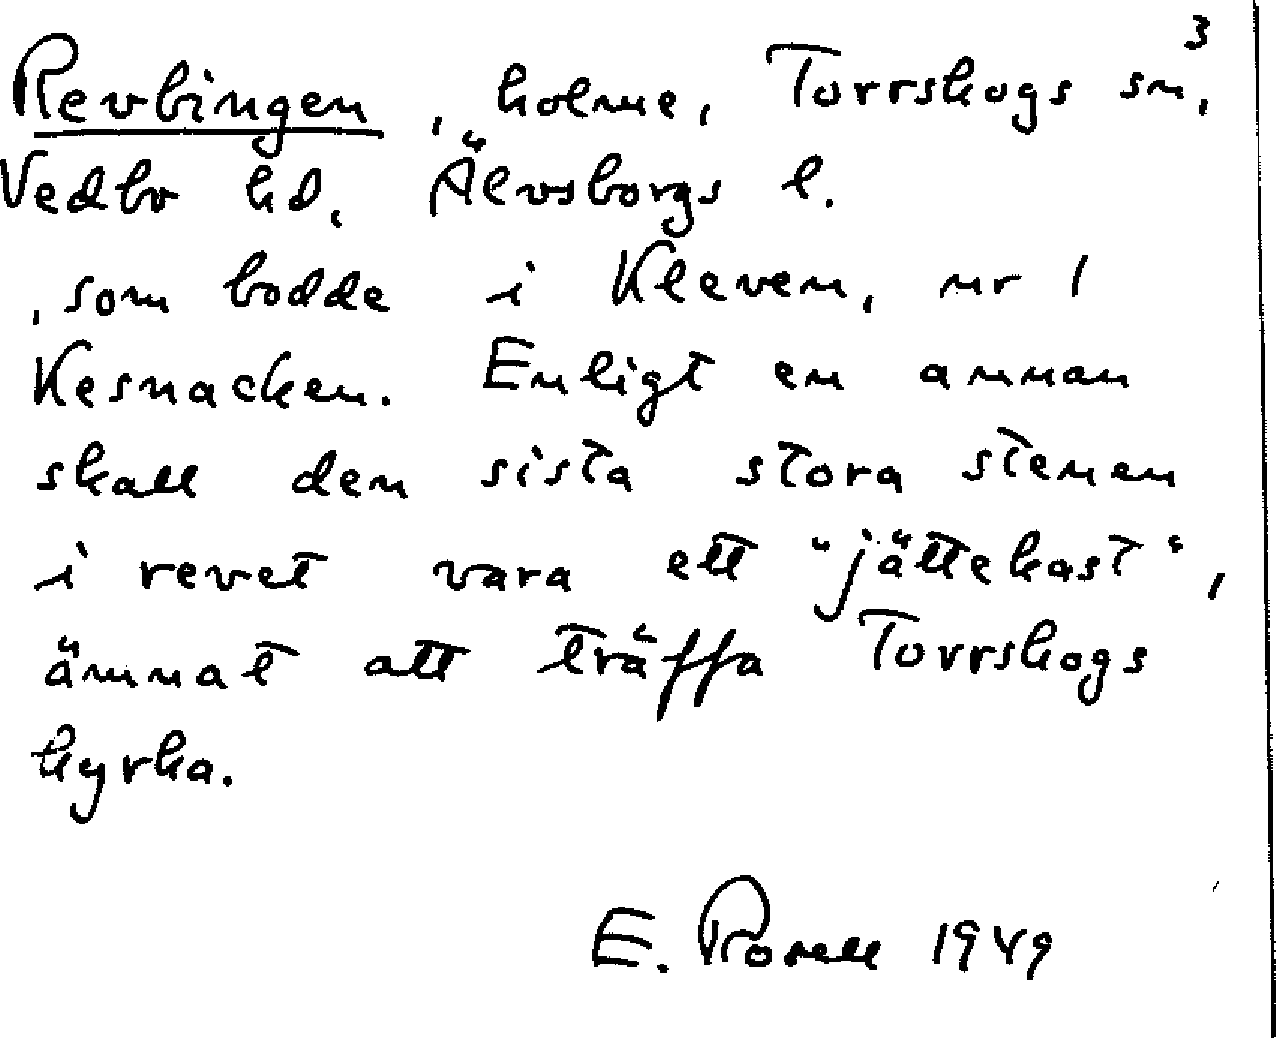 3
Revbingen, holme, Torrskogs sn,
Vedbo hd, Älvsborgs l.
, som bodde i Kleven, nr 1
Kesnacken. Enligt en annan
skall den sista stora stenen
i revet vara ett "jättekast",
ämnat att träffa Torrskogs
kyrka.
E. Rosell 1949